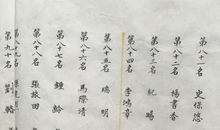 第八十一名 史保悠
第八十二名 楊書香
第八十三名 紀鶚
第八十四名 李鴻章
第八十五名 聰明
第八十六名 馬際清
第八十七名 鍾
第八十八名 張故田
第八十九名
第九十名 劉